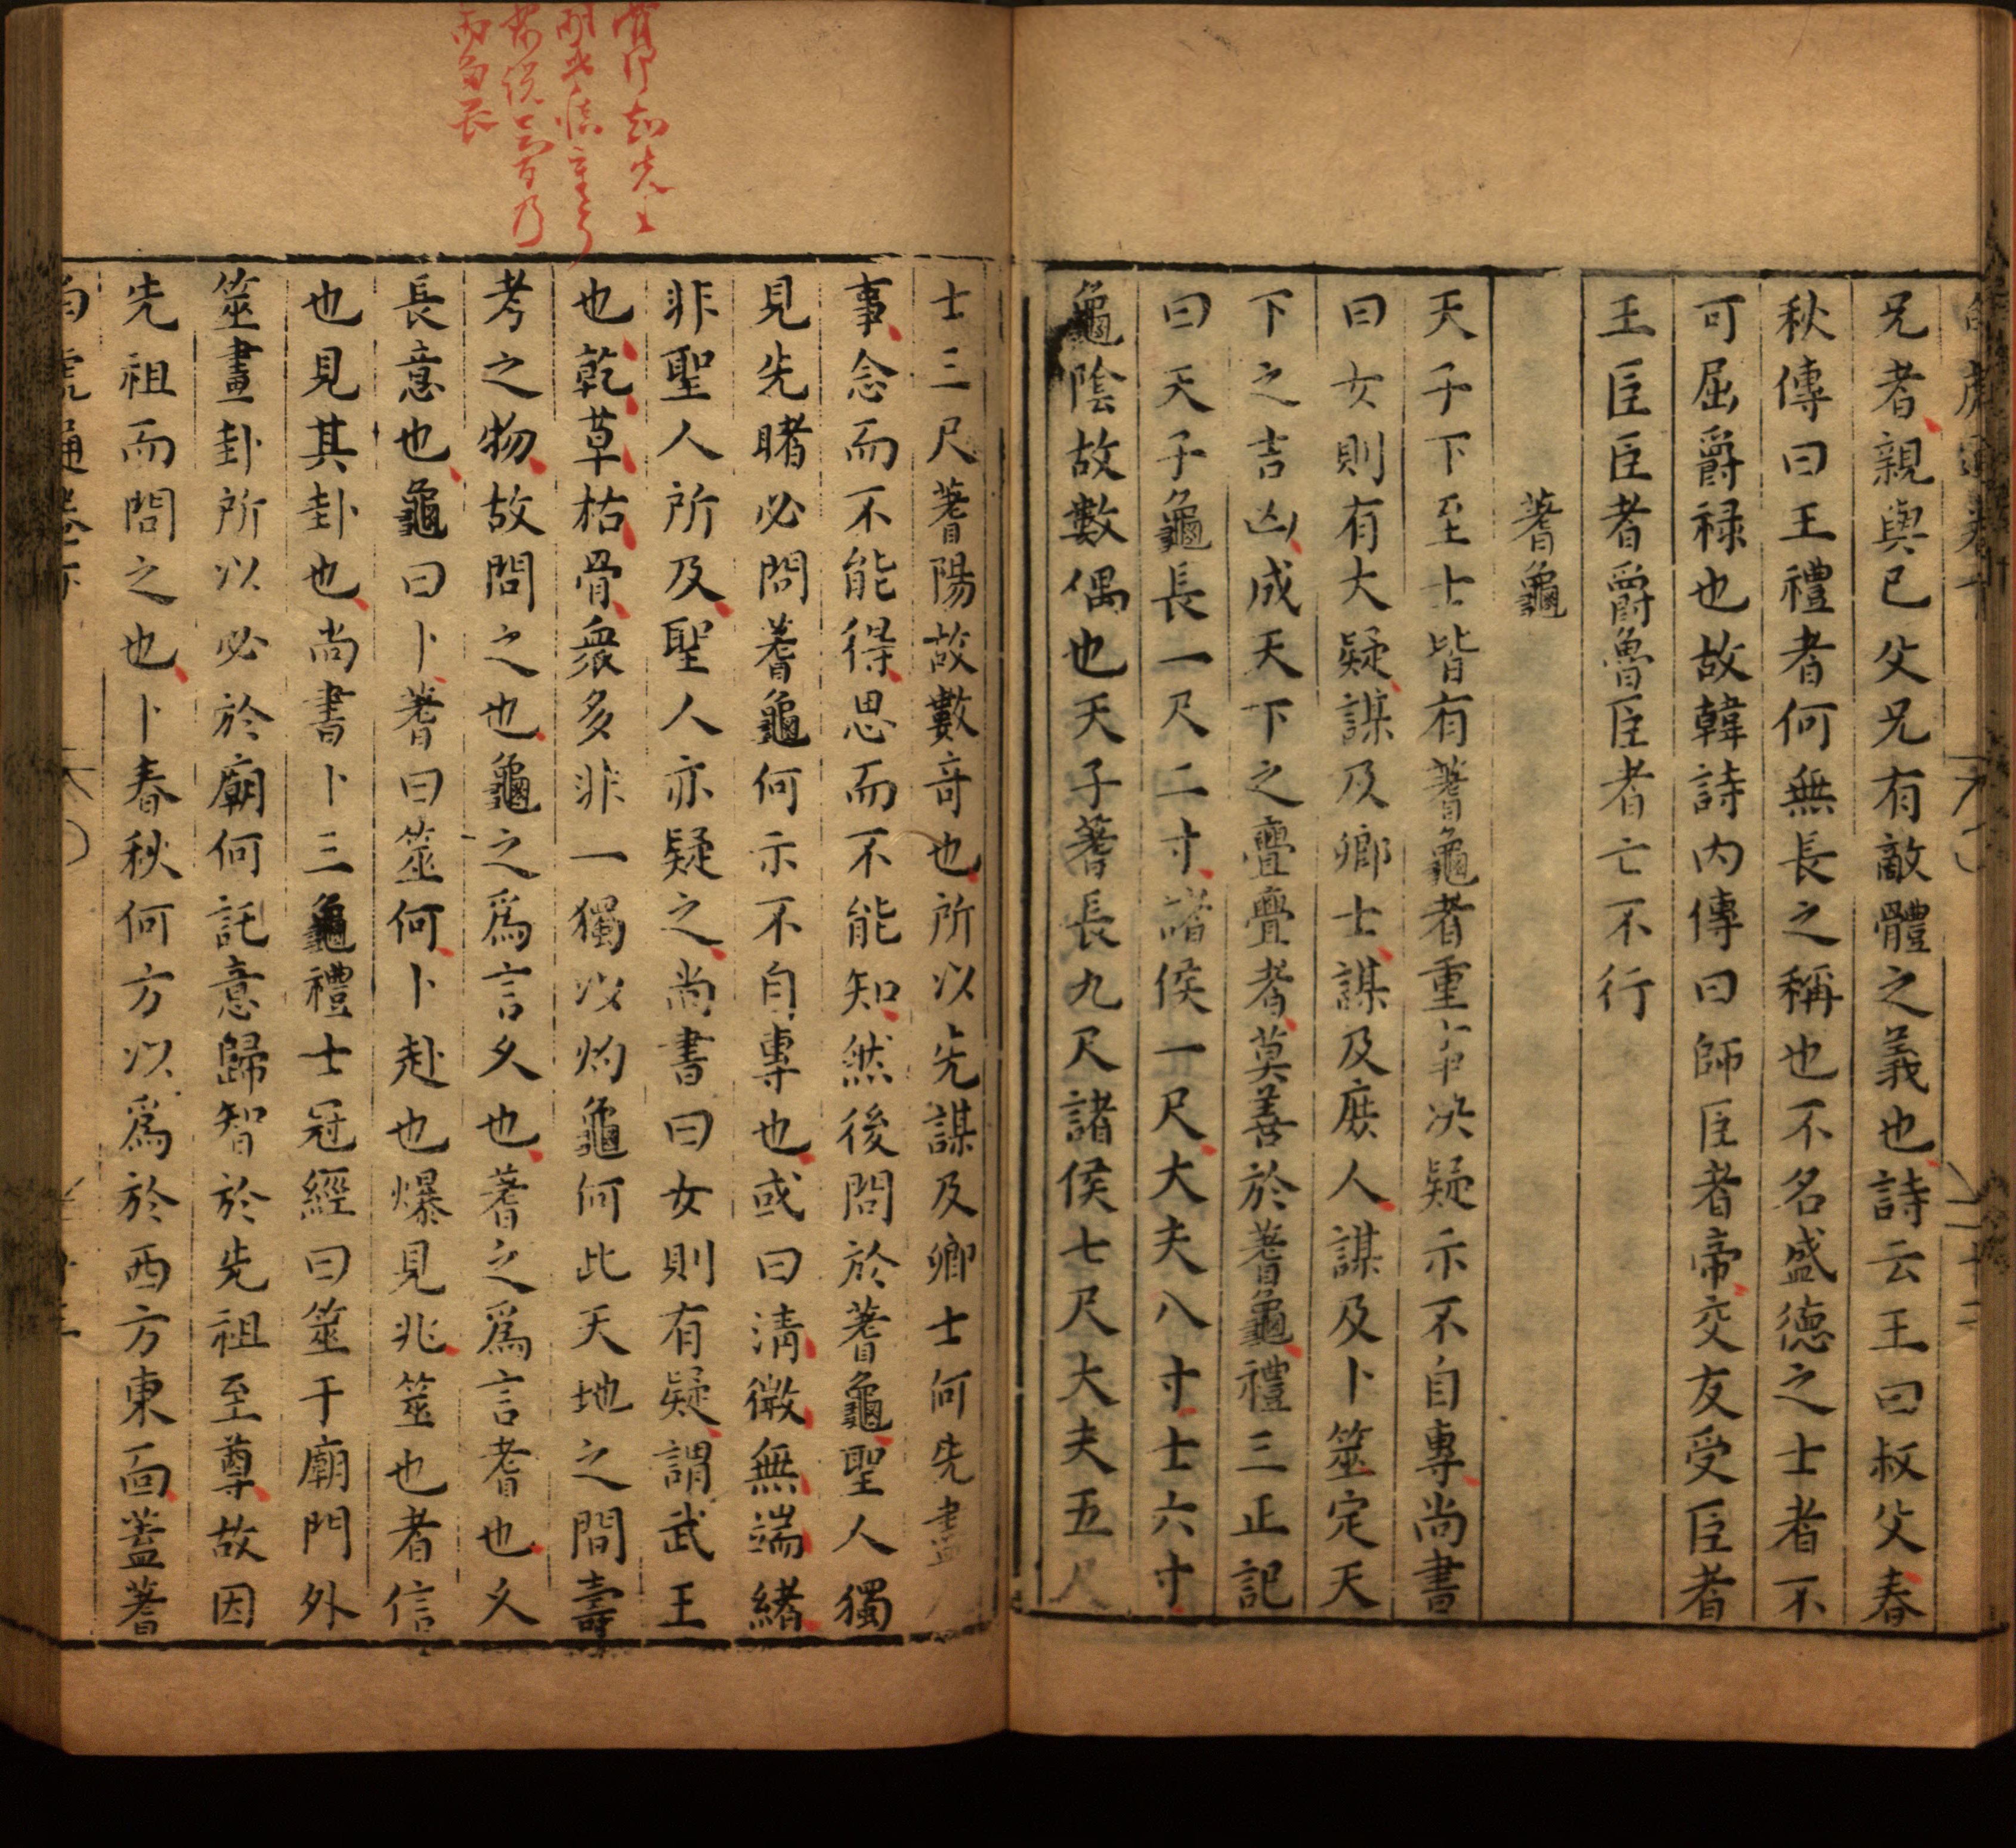 兄者親與已父兄有敵體之義也詩云王曰叔父春
秋傳曰王禮者何無長之稱也不名盛德之士者不
可屈爵祿也故韓詩內傳曰師臣者帝交友受臣者
王臣臣者爵魯臣者亡不行
蓍龜
天子下至士皆有蓍龜者重事决疑示不自專尚書
曰女則有大疑謀及卿士謀及庶人謀及卜筮定天
下之吉凶成天下之亹亹者莫善於蓍龜禮三正記
曰天子龜長一尺二寸諸侯一尺大夫八寸士六寸
龜陰故數偶也天子蓍長九尺諸侯七尺大夫五尺
士三尺蓍陽故數奇也所以先謀及卿士何先盡人
事念而不能得思而不能知然後問於蓍龜聖人獨
見先睹必問蓍龜何示不自專也或曰淸微無端緒
非聖人所及聖人亦疑之尚書曰女則有疑謂武王
也乾草枯骨衆多非一獨以灼龜何此天地之間壽
考之物故問之也龜之爲言久也蓍之爲言耆也久
長意也龜曰卜蓍曰筮何卜赴也爆見兆筮也者信
也見其卦也尚書卜三龜禮士冠經曰筮于廟門外
筮畫卦所以必於廟何託意歸智於先祖至尊故因
先祖而問之也卜春秋何方以爲於西方東面蓋蓍